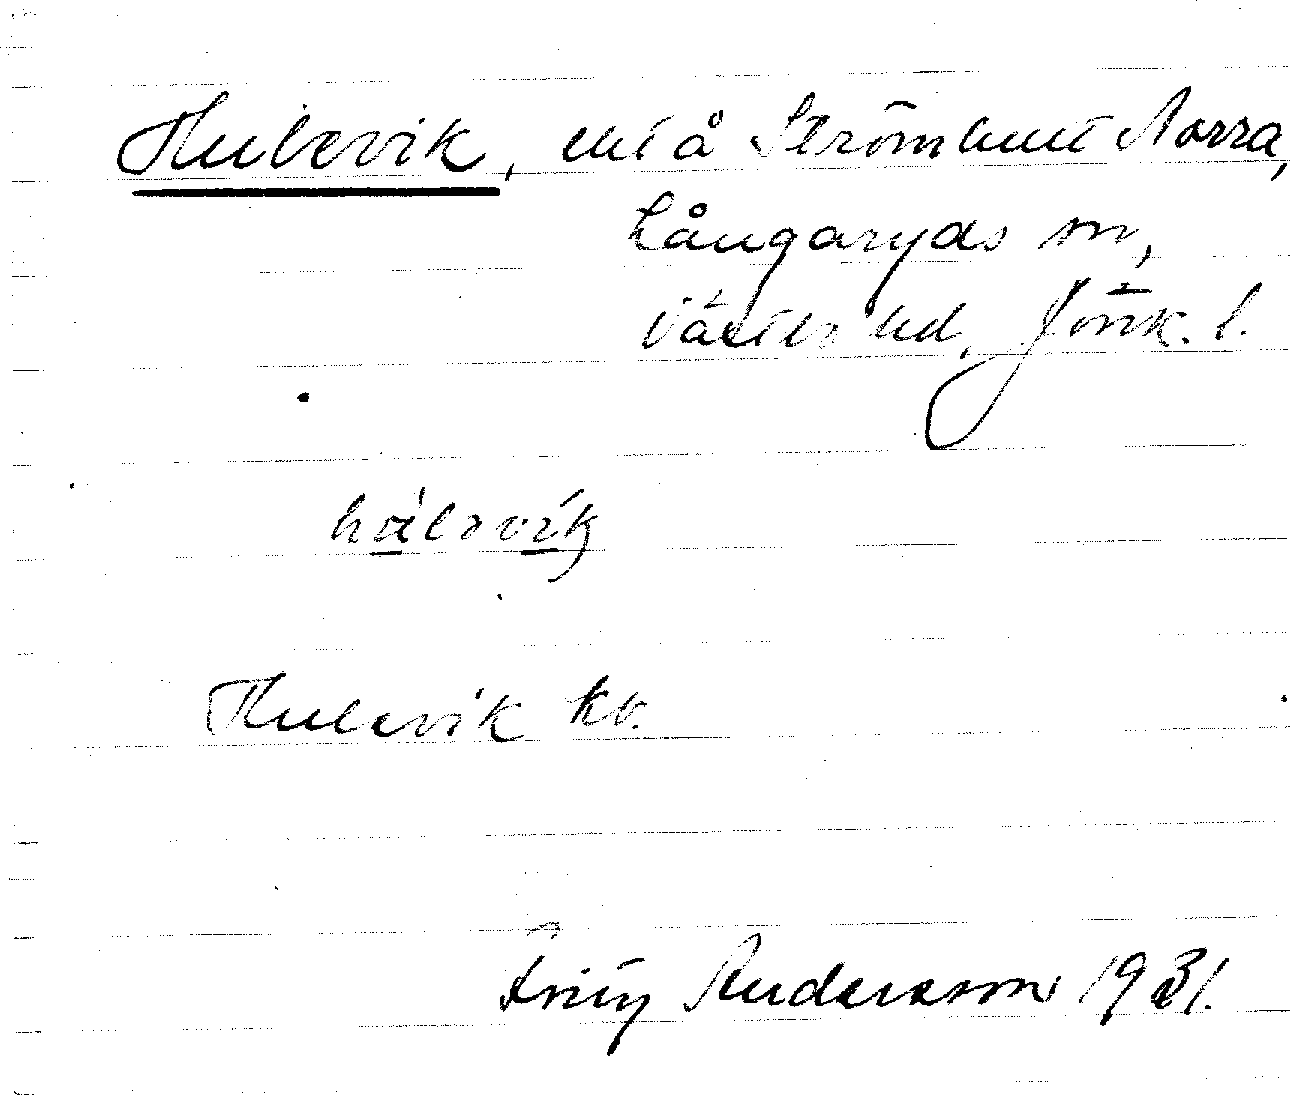 Hulevik, ent å Strömhult Norra,
Långaryds sn,
Västbo hd, Jönk. l.
hùlevik
Hulevik kv.
Fritz Andersson 1931.